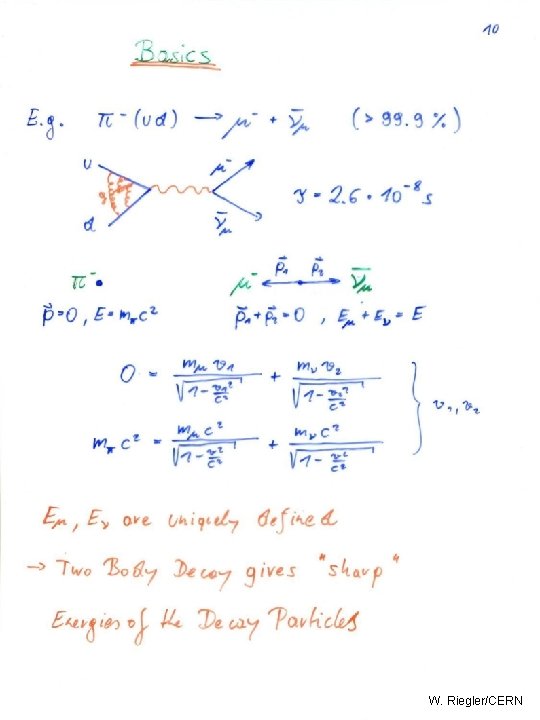 10
Basics
E.g. π⁻ (u d) → μ⁻ + ν̄_μ (> 99.9 %)
u μ⁻
g τ = 2.6 · 10⁻⁸ s
d ν̄_μ
π⁻ μ⁻ p⃗₁ p⃗₂ ν̄_μ
p⃗=0, E=m_π c² p⃗₁+p⃗₂=0, E_μ+E_ν=E
0 = m_μ v₁ / √(1 - v₁²/c²) + m_ν v₂ / √(1 - v₂²/c²)
v₁, v₂
m_π c² = m_μ c² / √(1 - v²/c²) + m_ν c² / √(1 - v²/c²)
E_μ, E_ν are uniquely defined
→ Two Body Decay gives "sharp"
Energies of the Decay Particles
W. Riegler/CERN